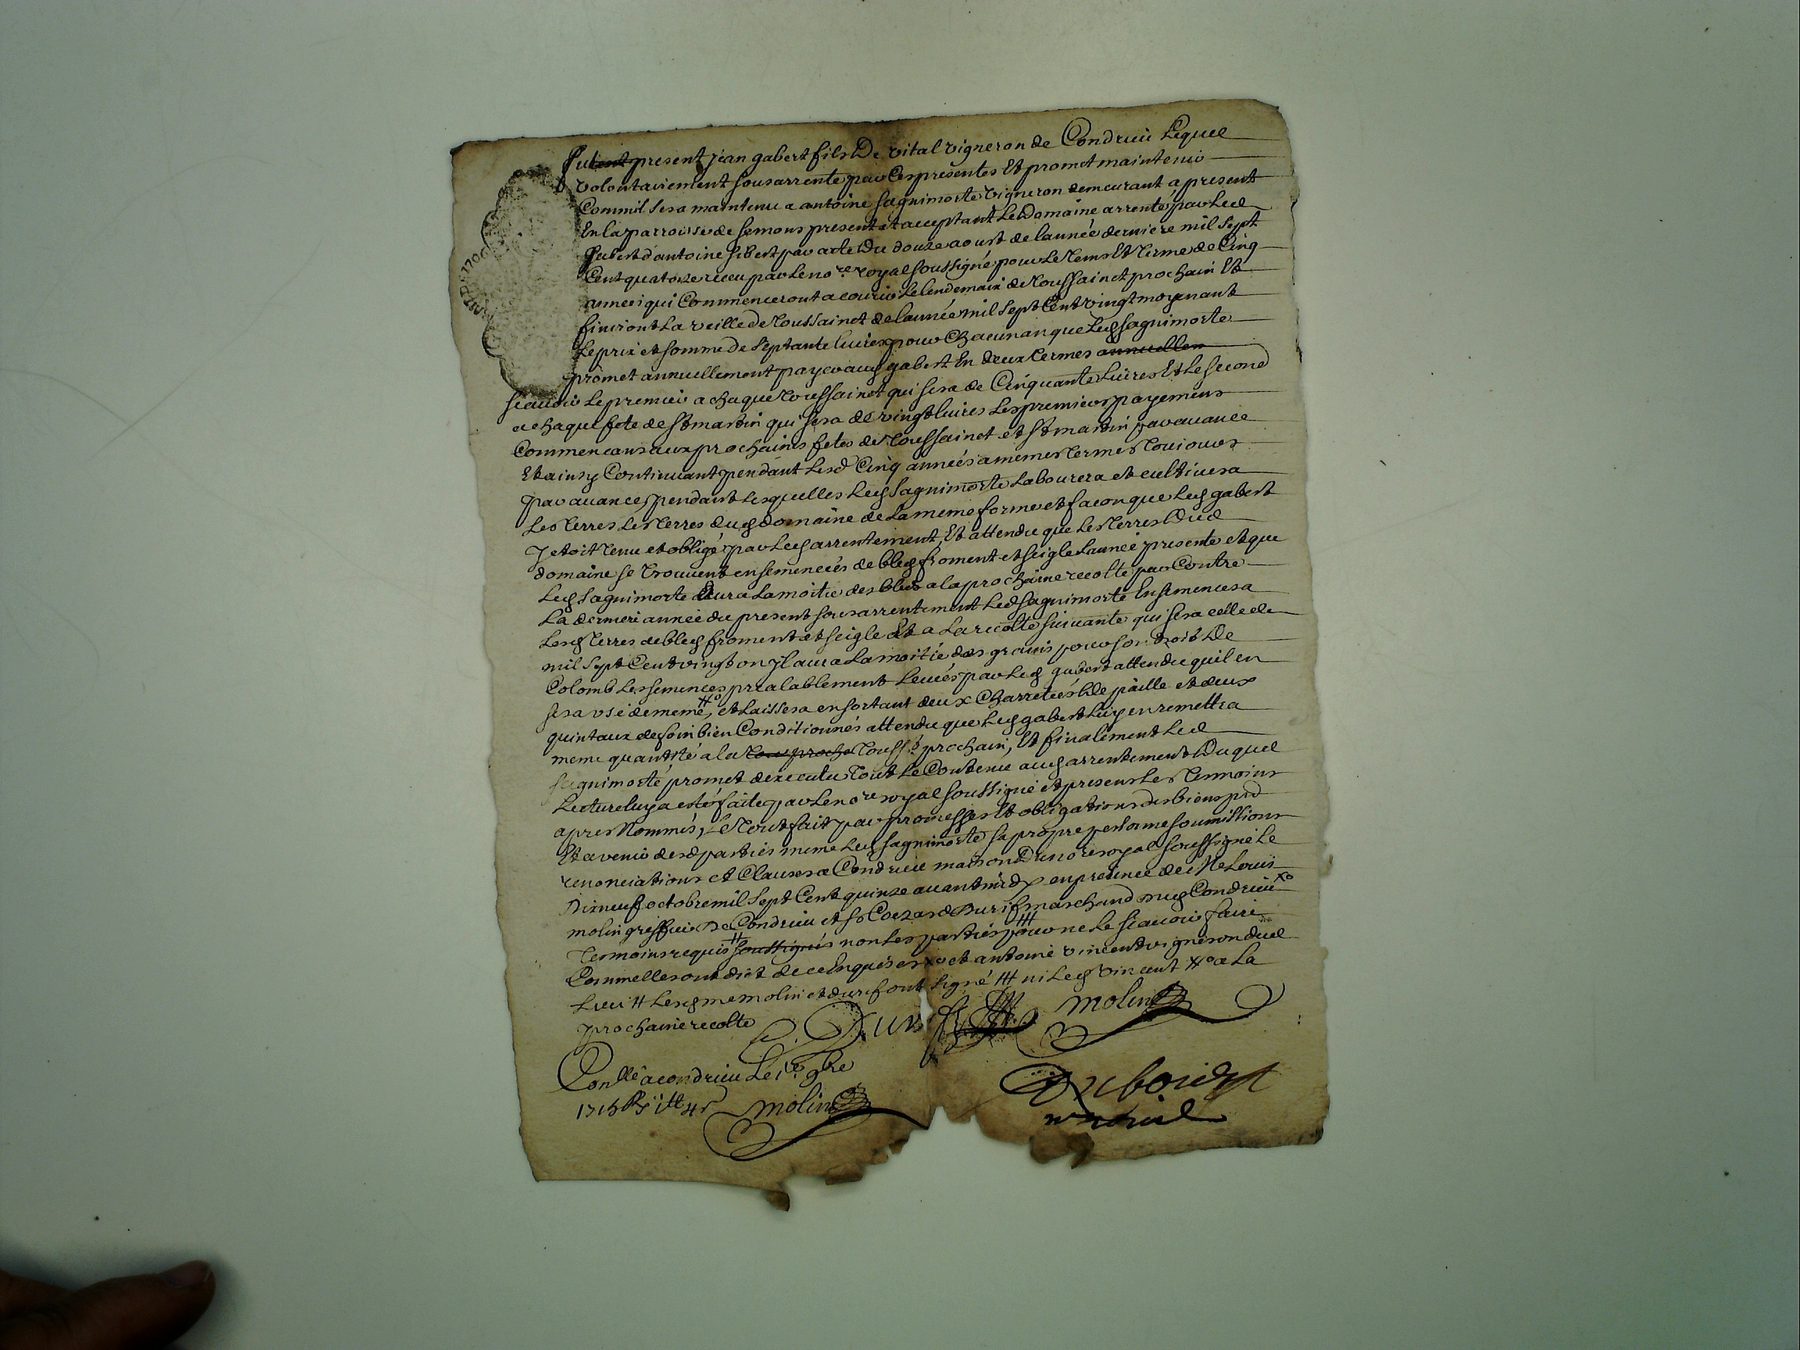 Fut present jean gabert fils De vital vigneron de Condrieu Lequel
volontairement sousarrente par Ces presentes Et promet maintenir
Commil sera maintenu a antoine saguimorte vigneron demeurant a present
En la parroisse de semons present et acceptant Le Domaine arrenté par Led
gabert d'antoine sibert par acte Du douze aoust de lannée derniere mil sept
Cent quatorze receu par Le no.re royal soussigné pour Le tems Et terme de Cinq
années qui Commenceront a courir Le lendemain de toussainct prochain Et
finiront La veille de toussainct de lannée mil sept Cent vingt moyenant
Le prix et somme de septante livres pour Chacun an que Led saguimorte
promet annuellement payer aud gabert En deux termes annuellem
scavoir Le premier a chaque toussainct qui sera de Cinquante Livres Et Le second
a chaque fete de st martin qui sera de vingt livres Les premiers payemens
Commencans aux prochaines fetes de toussainct et st martin par avance
Et ainsy Continuant pendant Lesd Cinq années a memes termes toujours
par avance, pendant Lesquelles Led saguimorte Labourera et cultivera
Les terres Les terres dud domaine de La meme forme et facon que Led gabert
y etoit tenu et obligé par Led arrentement, Et attendu que Les terres Dud
domaine se trouvent ensemencées de bled froment et seigle Lannée presente et que
Led saguimorte aura La moitié des bleds a la prochaine recolte par Contre
La derniere année du present sousarrentement Led saguimorte Ensemencera
Lesd terres de bled froment et seigle Et a La recolte suivante qui sera celle de
mil sept Cent vingt on y Laura La moitié des grains pour son droit De
Colomb Les semences prealablement Levées par Led gabert attendu quil en
sera usé de meme #o, et Laissera en sortant deux Charretées de paille et deux
quintaux de foin bien Conditionnés attendu que Led gabert Luy en remettra
meme quantité a la proche touss.t prochain, Et finalement Led
saguimorte promet dexecuter tout Le Contenu aud arrentement Duquel
Lecture luy a esté faite par Le no.re royal soussigné et presens Les temoins
apres Nommés, Le tout fait par promesses Et obligations des biens pnd
Et avenir desd parties meme Led saguimorte sa propre personne soumissions
renonciations et Clauses a Condrieu maison Du no.re royal soussigné Le
Dixneuf octobre mil sept Cent quinze avant midy en presence de Me Louis
molin greffier De Condrieu et sr Cezard Durif marchand dud Condrieu Xo
temoins requis # soussignés non Les parties pour ne Le scavoir faire
Comme elles ont dit de ce Enquises Xo et antoine vincent vigneron dud
Lieu # Lesd me molin et durif ont signé ### ni Led vincent #o a La
prochaine recolte
C. Durif
molin
Con.llé a condrieu Le 1.er 9bre
1715
molin
Dubouchet
no.re royal